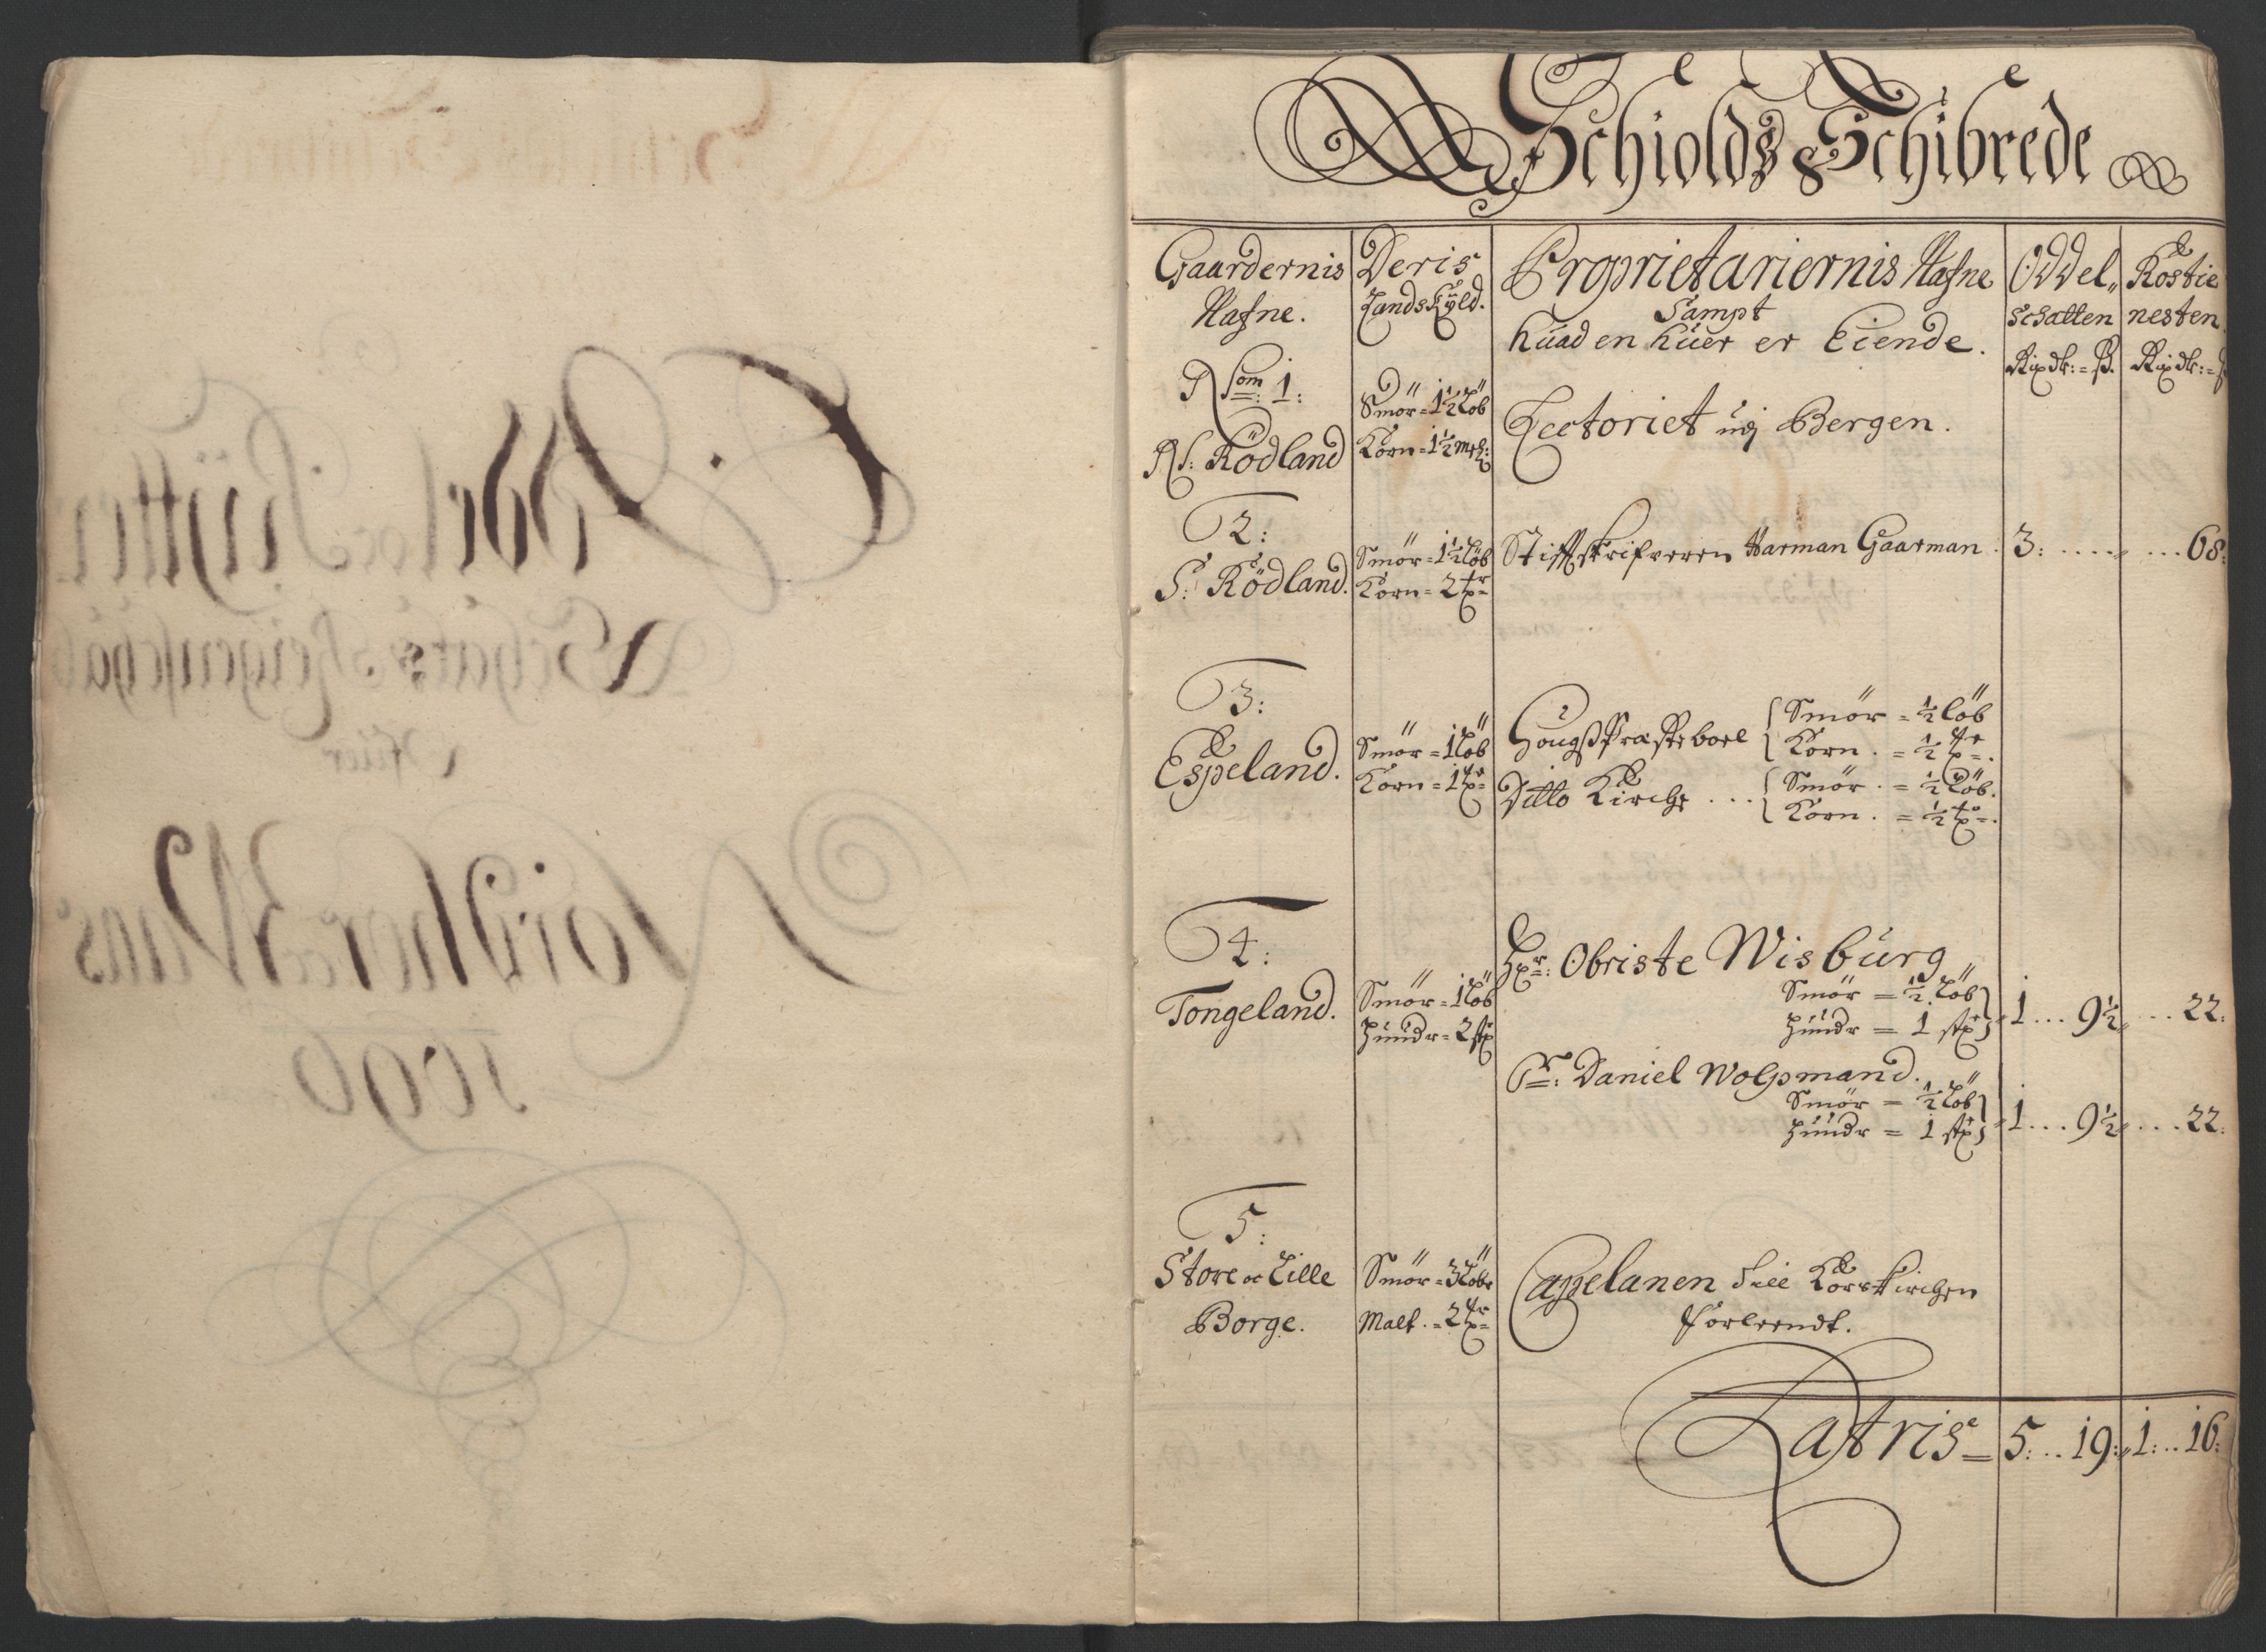 Schiolds Schibrede
Gaardernis Nafne.
Deris Landskÿld.
Proprietariernis Nafne
Sampt
huad en huer er Eiende.
Oddel schatten
Rixdr: = ß.
Rostie nesten
Rixdr: = ß
Nom: 1:
N: Rödland
Smör = 1½ Löb
Korn = 1½ mæl:
Lectoriet udj Bergen.
2:
S: Rödland.
Smör = 1½ Löb
Korn = 2 tr
Stiftskrifveren Harman Gaarman. 3: .... ... 68:
3:
Espeland.
Smör = 1 Löb
Korn = 1 tr
Hougs Præsteboel
Smör = ½ löb
Korn. = ½ tr.
Ditto Kirche ...
Smör. = ½ Löb.
Korn. = ½ tr.
4:
Tongeland.
Smör = 1 Löb
Huudr = 2 stk
Hr: Obriste Wisburg
Smör = ½ Löb
Huudr = 1 stk
1 ... 9½ ... 22:
Sr: Daniel Wolpmand.
Smör = ½ Löb
Huudr = 1 stk
1 ... 9½ ... 22:
5:
Store oc Lille
Borge.
Smör = 3 Löber
Malt. = 2 tr
Capelanen till Korskirchen
forleendt.
Latris = 5: .. 19: 1: .. 16:
Oddel oc Rÿtter
Schats Reigenschab
Nordhor Waas
1696